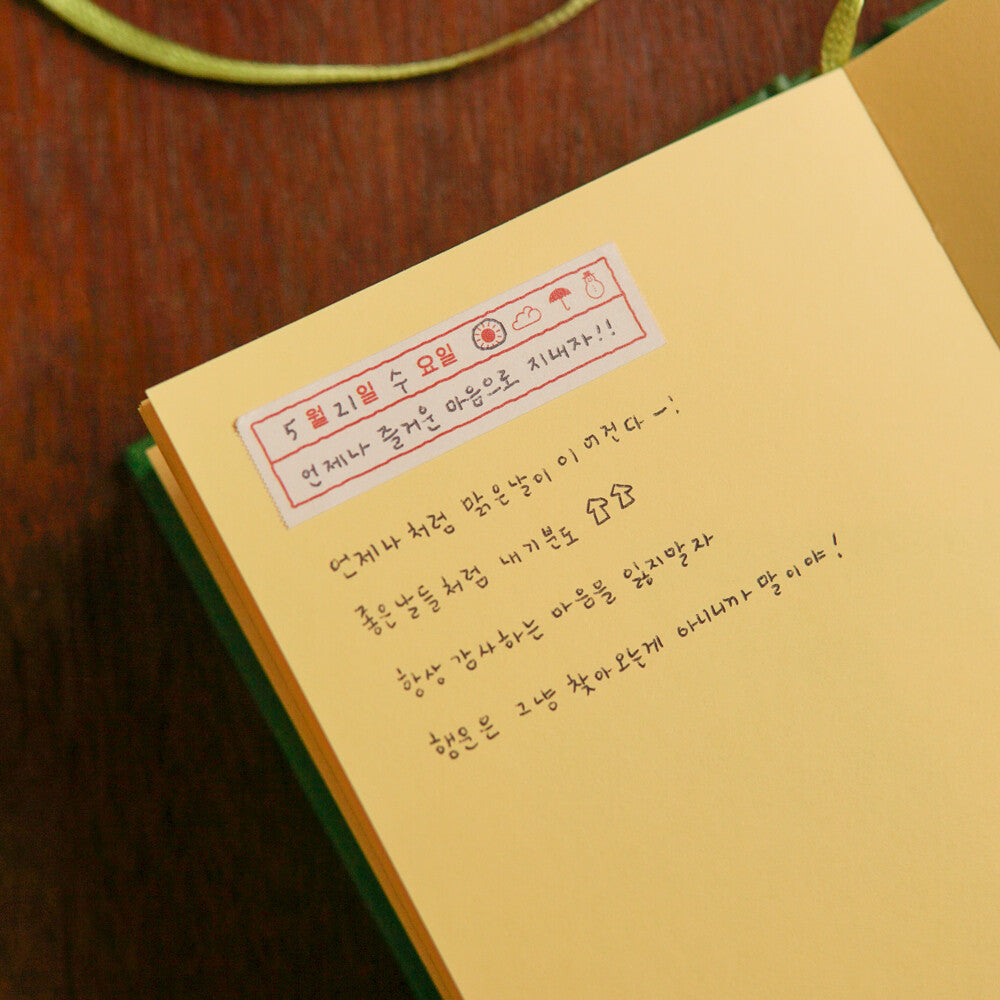 5월 21일 수요일
언제나 즐거운 마음으로 지내자!!
언제나처럼 맑은날이 이어진다-!
좋은날들처럼 내기분도 ⇧⇧
항상 감사하는 마음을 잃지말자
행운은 그냥 찾아오는게 아니니까 말이야!